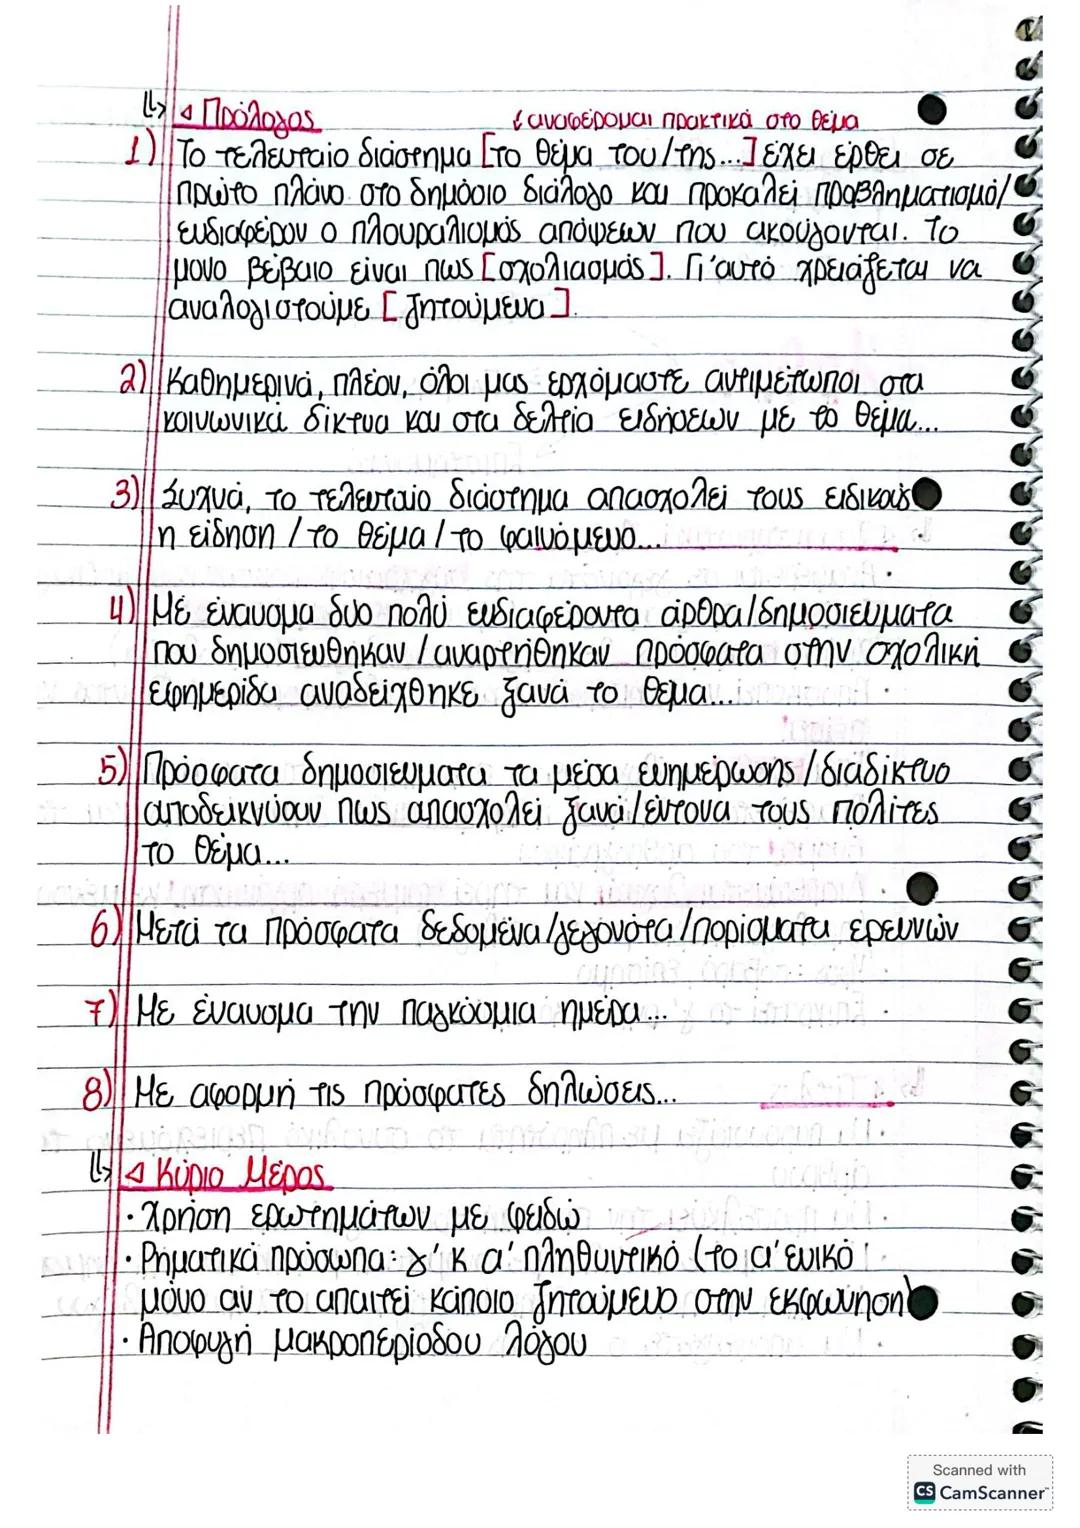 Πρόλογος
αναφέρομαι πρακτικά στο θέμα
1) Το τελευταίο διάστημα [το θέμα του/της...] έχει έρθει σε
πρώτο πλάνο στο δημόσιο διάλογο και προκαλεί προβληματισμό/
ενδιαφέρον ο πλουραλισμός απόψεων που ακούγονται. Το
μόνο βέβαιο είναι πως [σχολιασμός]. Γι'αυτό χρειάζεται να
αναλογιστούμε [ζητούμενα].
2) Καθημερινά, πλέον, όλοι μας ερχόμαστε αντιμέτωποι στα
κοινωνικά δίκτυα και στα δελτία ειδήσεων με το θέμα...
3) Συχνά, το τελευταίο διάστημα απασχολεί τους ειδικούς
η είδηση / το θέμα / το φαινόμενο...
4) Με έναυσμα δυο πολύ ενδιαφέροντα άρθρα/δημοσιεύματα
που δημοσιευθηκαν / αναρτήθηκαν πρόσφατα στην σχολική
εφημερίδα αναδείχθηκε ξανά το θέμα...
5) Πρόσφατα δημοσιεύματα τα μέσα ενημέρωσης /διαδίκτυο
αποδεικνύουν πως απασχολεί ξανά/έντονα τους πολίτες
το θέμα...
6) Μετά τα πρόσφατα δεδομένα/γεγονότα/πορίσματα ερευνών
7) Με έναυσμα την παγκόσμια ημέρα...
8) Με αφορμή τις πρόσφατες δηλώσεις...
Κύριο Μέρος
· Χρήση ερωτημάτων με φειδώ
· Ρηματικά πρόσωπα: γ' κ α' πληθυντικό (το α' ενικό
μόνο αν το απαιτεί κάποιο ζητούμενο στην εκφώνηση)
· Αποφυγή μακροπερίοδου λόγου
Scanned with
CS CamScanner